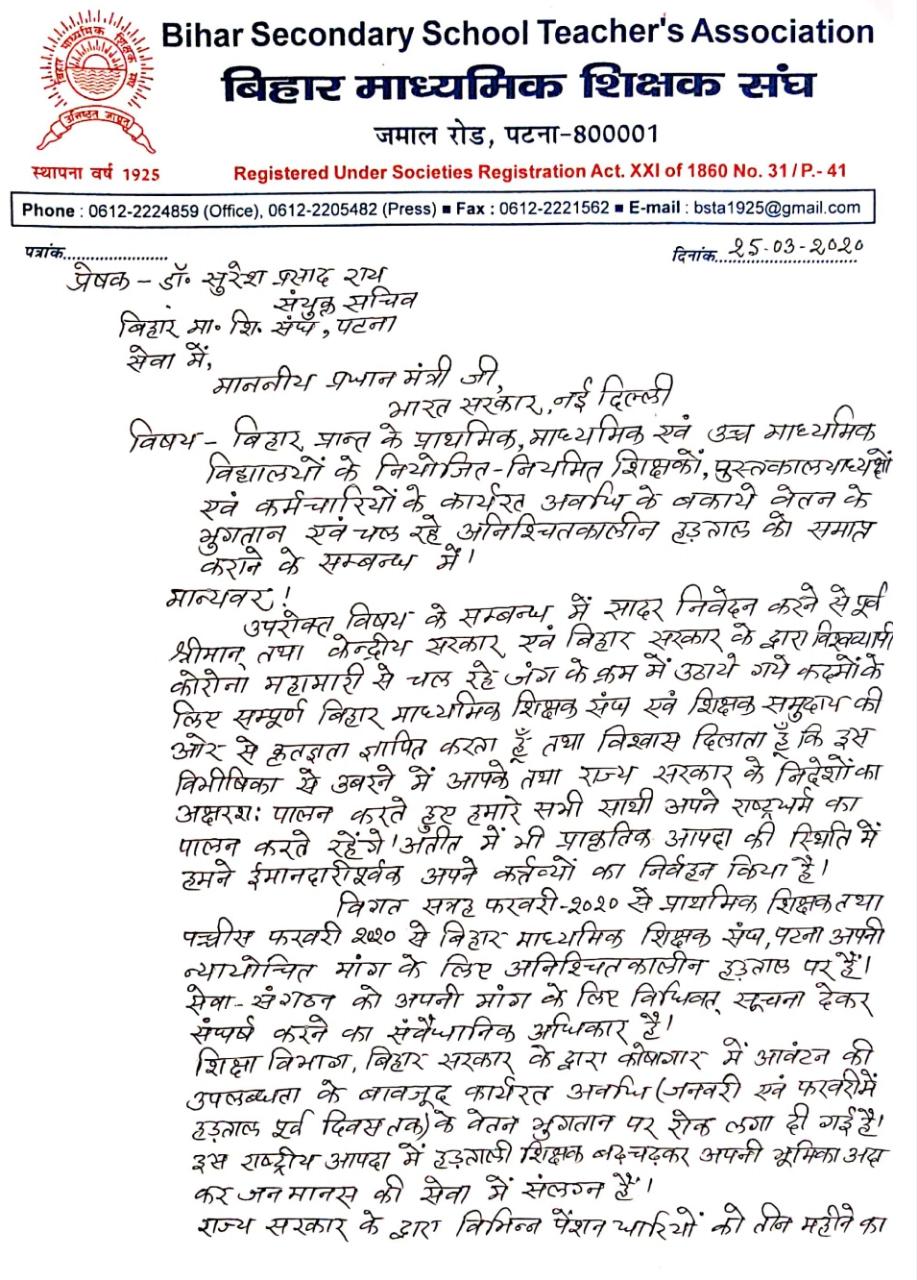 Bihar Secondary School Teacher's Association
बिहार माध्यमिक शिक्षक संघ
जमाल रोड, पटना-800001
बिहार माध्यमिक शिक्षक संघ
उत्तिष्ठत जाग्रत
स्थापना वर्ष 1925
Registered Under Societies Registration Act. XXI of 1860 No. 31/P.- 41
Phone : 0612-2224859 (Office), 0612-2205482 (Press) ■ Fax : 0612-2221562 ■ E-mail : bsta1925@gmail.com
पत्रांक........................ दिनांक 25-03-2020
प्रेषक - डॉ. सुरेश प्रसाद राय
संयुक्त सचिव
बिहार मा. शि. संघ, पटना
सेवा में,
माननीय प्रधान मंत्री जी,
भारत सरकार, नई दिल्ली
विषय - बिहार प्रान्त के प्राथमिक, माध्यमिक एवं उच्च माध्यमिक
विद्यालयों के नियोजित-नियमित शिक्षकों, पुस्तकालयाध्यक्षों
एवं कर्मचारियों के कार्यरत अवधि के बकाये वेतन के
भुगतान एवं चल रहे अनिश्चितकालीन हड़ताल को समाप्त
कराने के सम्बन्ध में।
मान्यवर!
उपरोक्त विषय के सम्बन्ध में सादर निवेदन करने से पूर्व
श्रीमान् तथा केन्द्रीय सरकार एवं बिहार सरकार के द्वारा विश्वव्यापी
कोरोना महामारी से चल रहे जंग के क्रम में उठाये गये कदमों के
लिए सम्पूर्ण बिहार माध्यमिक शिक्षक संघ एवं शिक्षक समुदाय की
ओर से कृतज्ञता ज्ञापित करता हूँ तथा विश्वास दिलाता हूँ कि इस
विभीषिका से उबरने में आपके तथा राज्य सरकार के निर्देशों का
अक्षरश: पालन करते हुए हमारे सभी साथी अपने राष्ट्रधर्म का
पालन करते रहेंगे। अतीत में भी प्राकृतिक आपदा की स्थिति में
हमने ईमानदारीपूर्वक अपने कर्त्तव्यों का निर्वहन किया है।
विगत सत्रह फरवरी-२०२० से प्राथमिक शिक्षक तथा
पच्चीस फरवरी २०२० से बिहार माध्यमिक शिक्षक संघ, पटना अपनी
न्यायोचित मांग के लिए अनिश्चितकालीन हड़ताल पर हैं।
सेवा-संगठन को अपनी मांग के लिए विधिवत् सूचना देकर
संघर्ष करने का संवैधानिक अधिकार है।
शिक्षा विभाग, बिहार सरकार के द्वारा कोषागार में आवंटन की
उपलब्धता के बावजूद कार्यरत अवधि (जनवरी एवं फरवरी में
हड़ताल पूर्व दिवस तक) के वेतन भुगतान पर रोक लगा दी गई है।
इस राष्ट्रीय आपदा में हड़ताली शिक्षक बढ़चढ़कर अपनी भूमिका अदा
कर जन मानस की सेवा में संलग्न हैं।
राज्य सरकार के द्वारा विभिन्न पेंशन धारियों को तीन महीने का